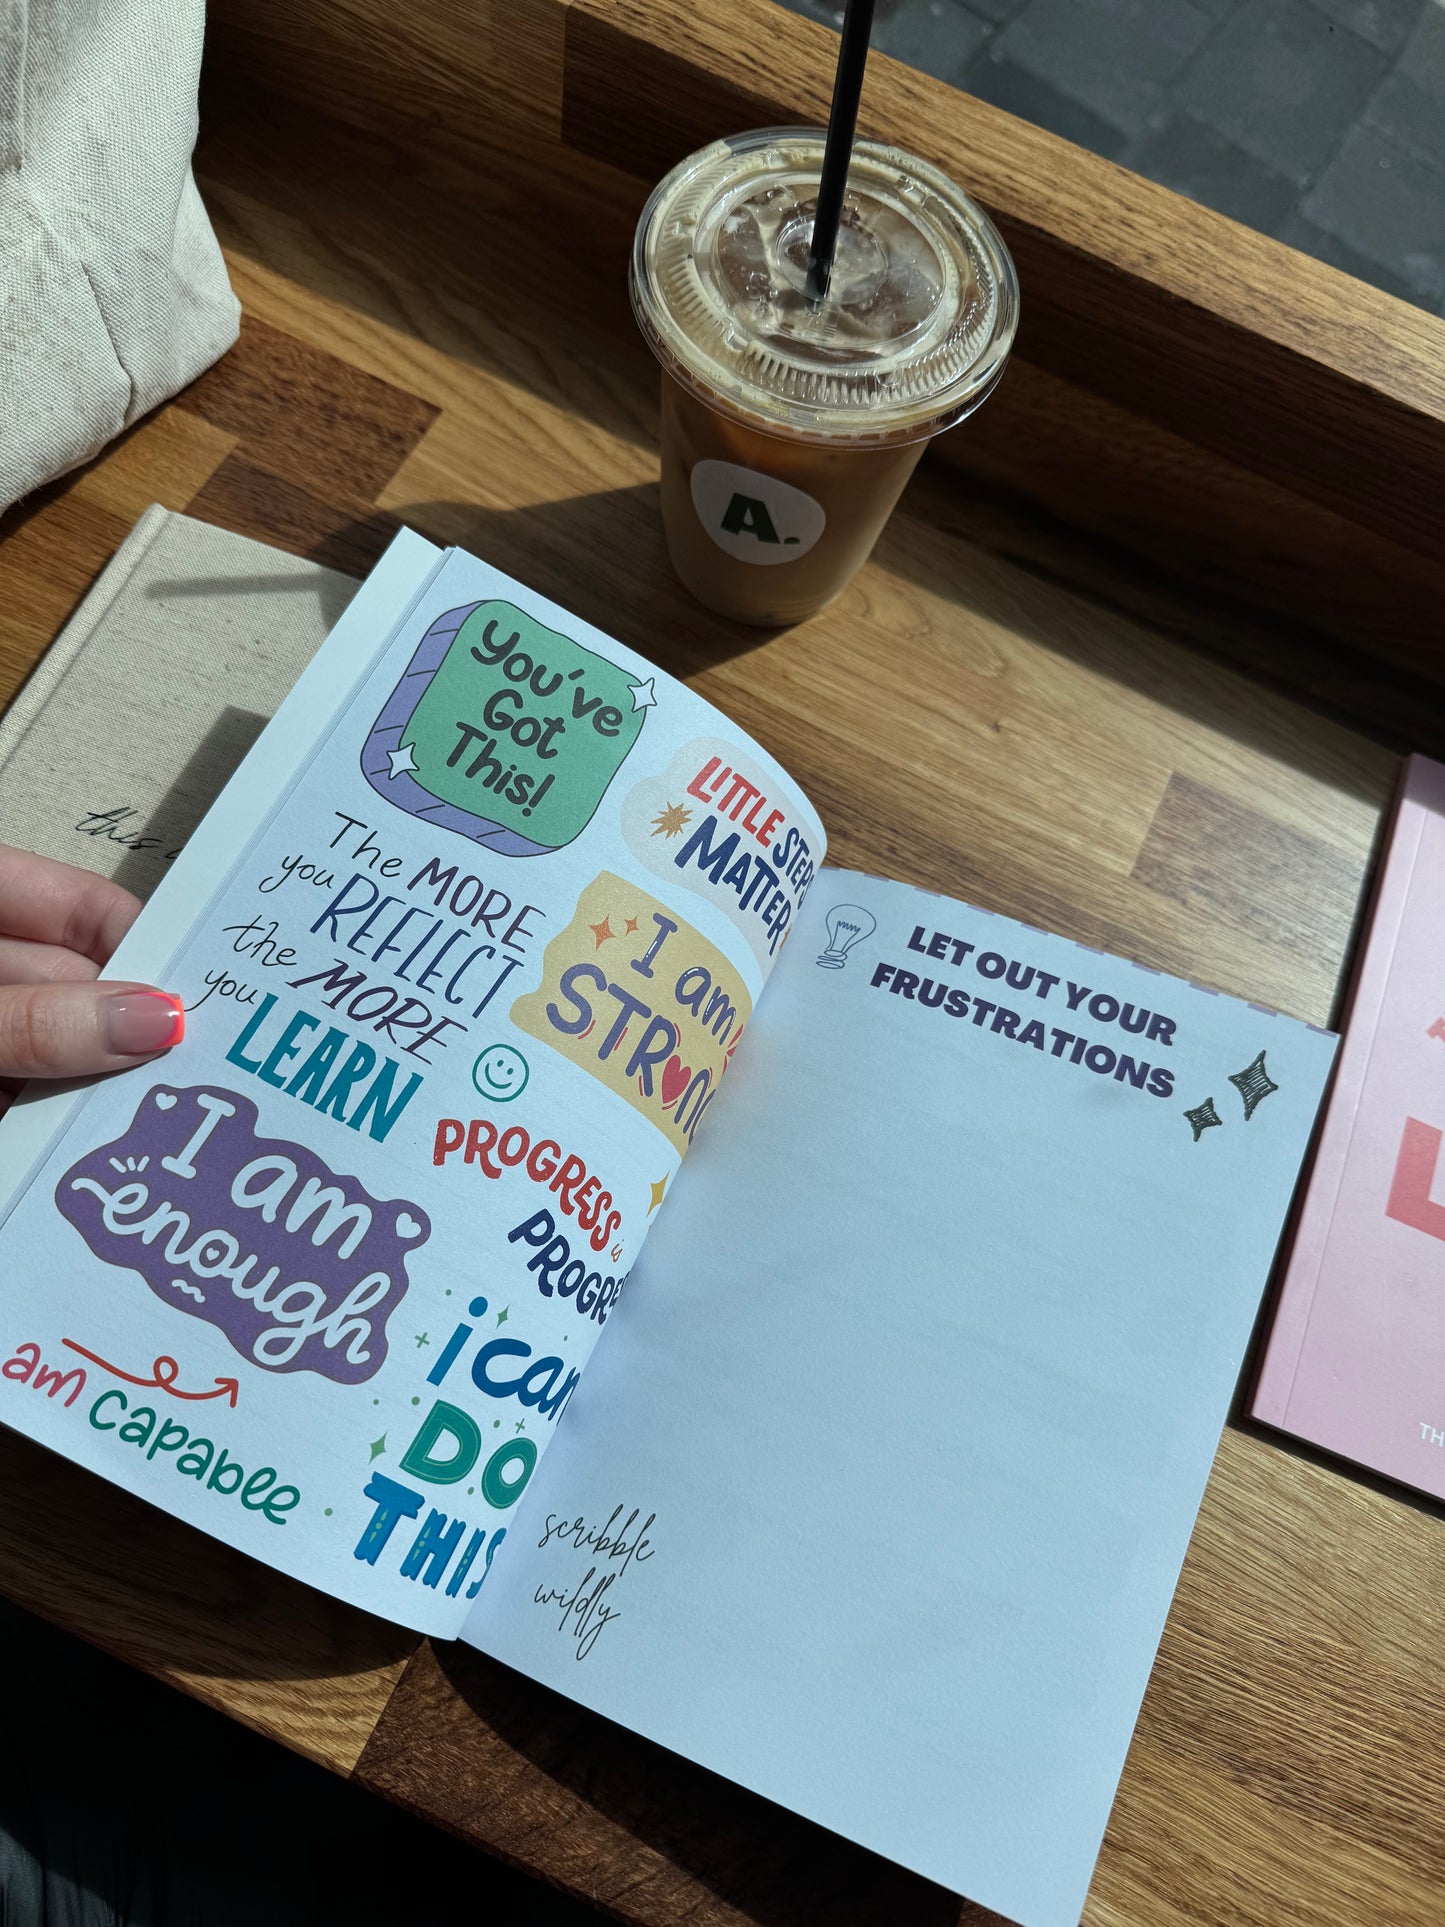 A.
this
You've
Got
This!
LITTLE STEPS
MATTER
The MORE
you REFLECT
the MORE
you LEARN
I am
STRONG
PROGRESS is
PROGRESS
I am
enough
am capable
i can
DO
THIS
LET OUT YOUR
FRUSTRATIONS
scribble
wildly
TH